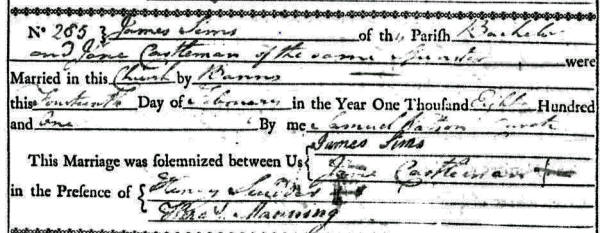 Nº 285 } James Sims of this Parish Bachelor
and Jane Castleman of the same Spinster were
Married in this Church by Banns
this Fourteenth Day of February in the Year One Thousand Eight Hundred
and One By me Samuel Curate
This Marriage was solemnized between Us { James Sims
Jane Castleman
in the Presence of { Henry
Thos Manning